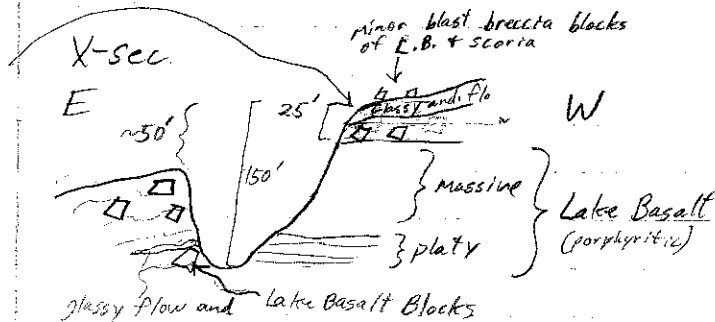 minor blast breccia blocks
of L.B. & Scoria
X-sec.
E
W
~50'
25'
150'
glassy andi flo
massive
platy
Lake Basalt
(porphyritic)
glassy flow and Lake Basalt Blocks